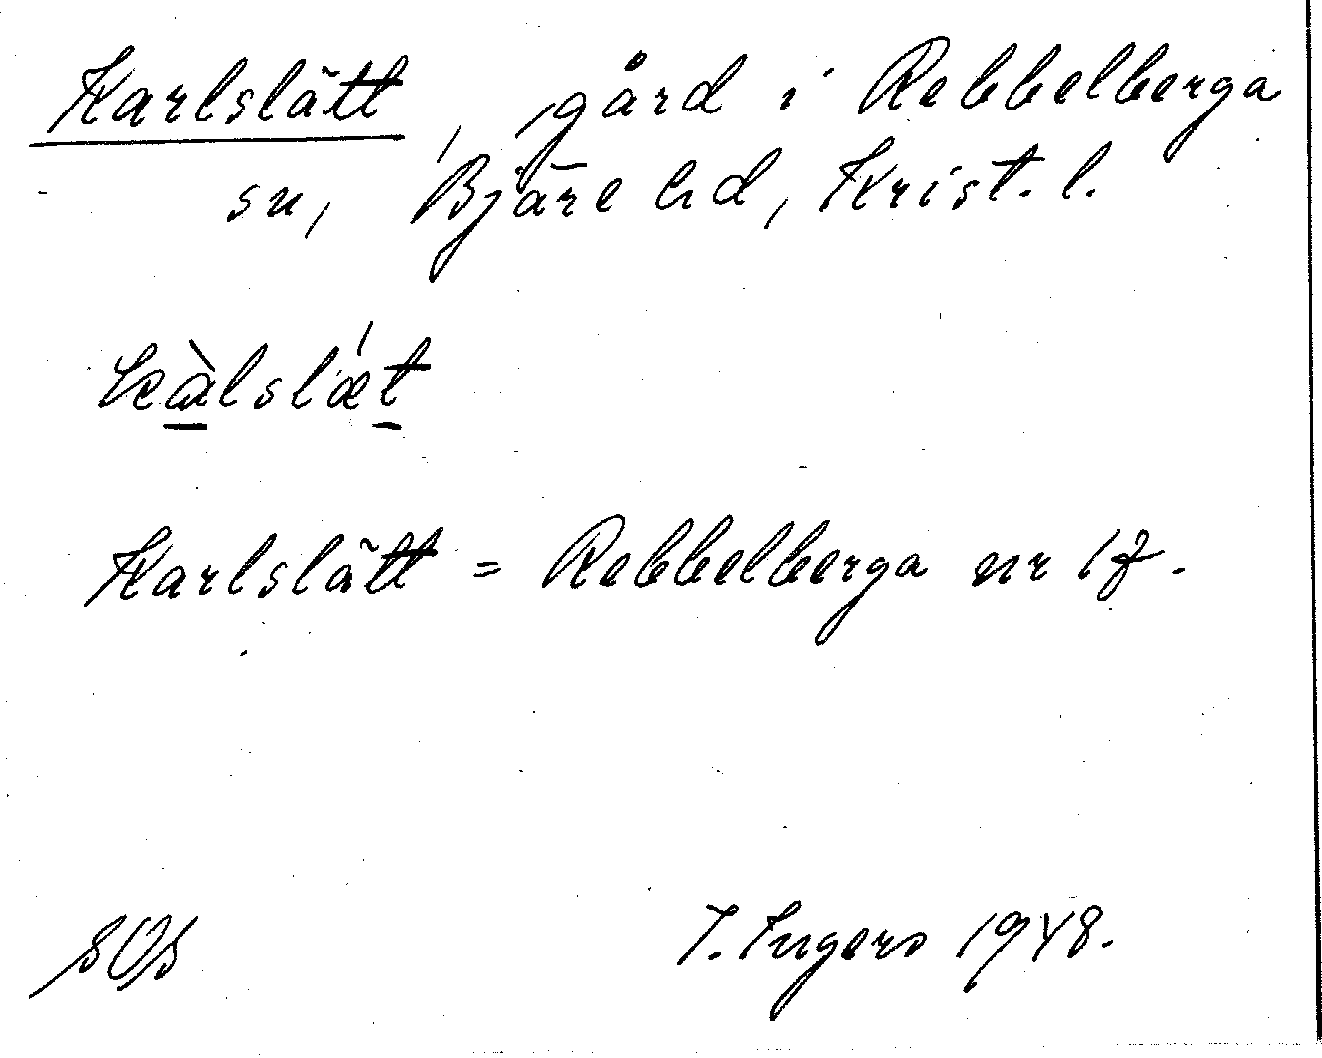 Karlslätt, gård i Rebbelberga
sn, Bjäre hd, Krist. l.
kàlslǽt
Karlslätt = Rebbelberga nr 17.
I. Ingers 1948.